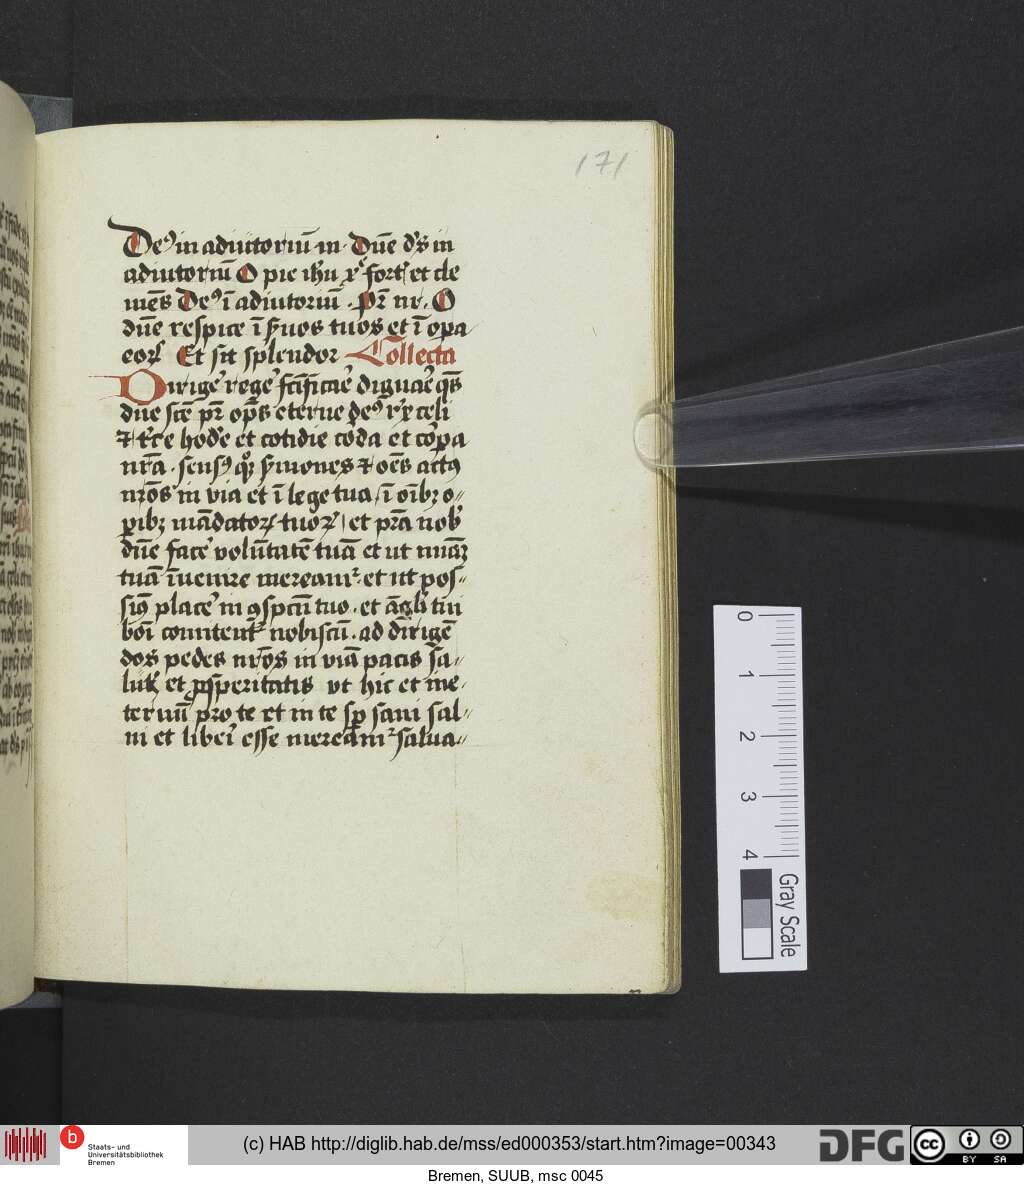 171
Deꝰ in adiutoriū in · Dūe ds in
adiutoriū O pie ihu xᵉ fortꝭ et cle
mēs Deꝰ ī adiutoriū · Pr̄ nr · O
dūe respice ī suos tuos et ī opa
eorꝝ Et sit splendor Collecta
Dirigeˀ regeˀ scīficaeˀ dignaeˀ qs̄
dūe scē pr̄ ops̄ eterne deꝰ rx celi
⁊ tr̄e hodˀe et cotidie coda et coꝛpa
nr̄a · sensꝰ qꝫ s̄mones ⁊ oēs actꝰ
nr̄os in via et ī lege tua ī oībꝫ o
pibꝫ mādatorꝝ tuorꝝ et pr̄a nobˀ
dūe faceˀ volūtatē tuā et ut miāꝫ
tuā īuenire mereamˀ · et ut pos
siꝰ placeˀ in ꝯspc̄u tuo · et āgli tui
boī comitentˀ nobiscū · ad dirigē
dos pedes nr̄os in viā pacis sa
lutꝭ et ꝓsperitatis ut hic et in e
ternū pro te et in te sp̄ sani sal
ui et libeˀi esse mereamˀ salua
0 1 2 3 4
Gray Scale
b
Staats- und
Universitätsbibliothek
Bremen
(c) HAB http://diglib.hab.de/mss/ed000353/start.htm?image=00343
DFG
cc BY SA
Bremen, SUUB, msc 0045